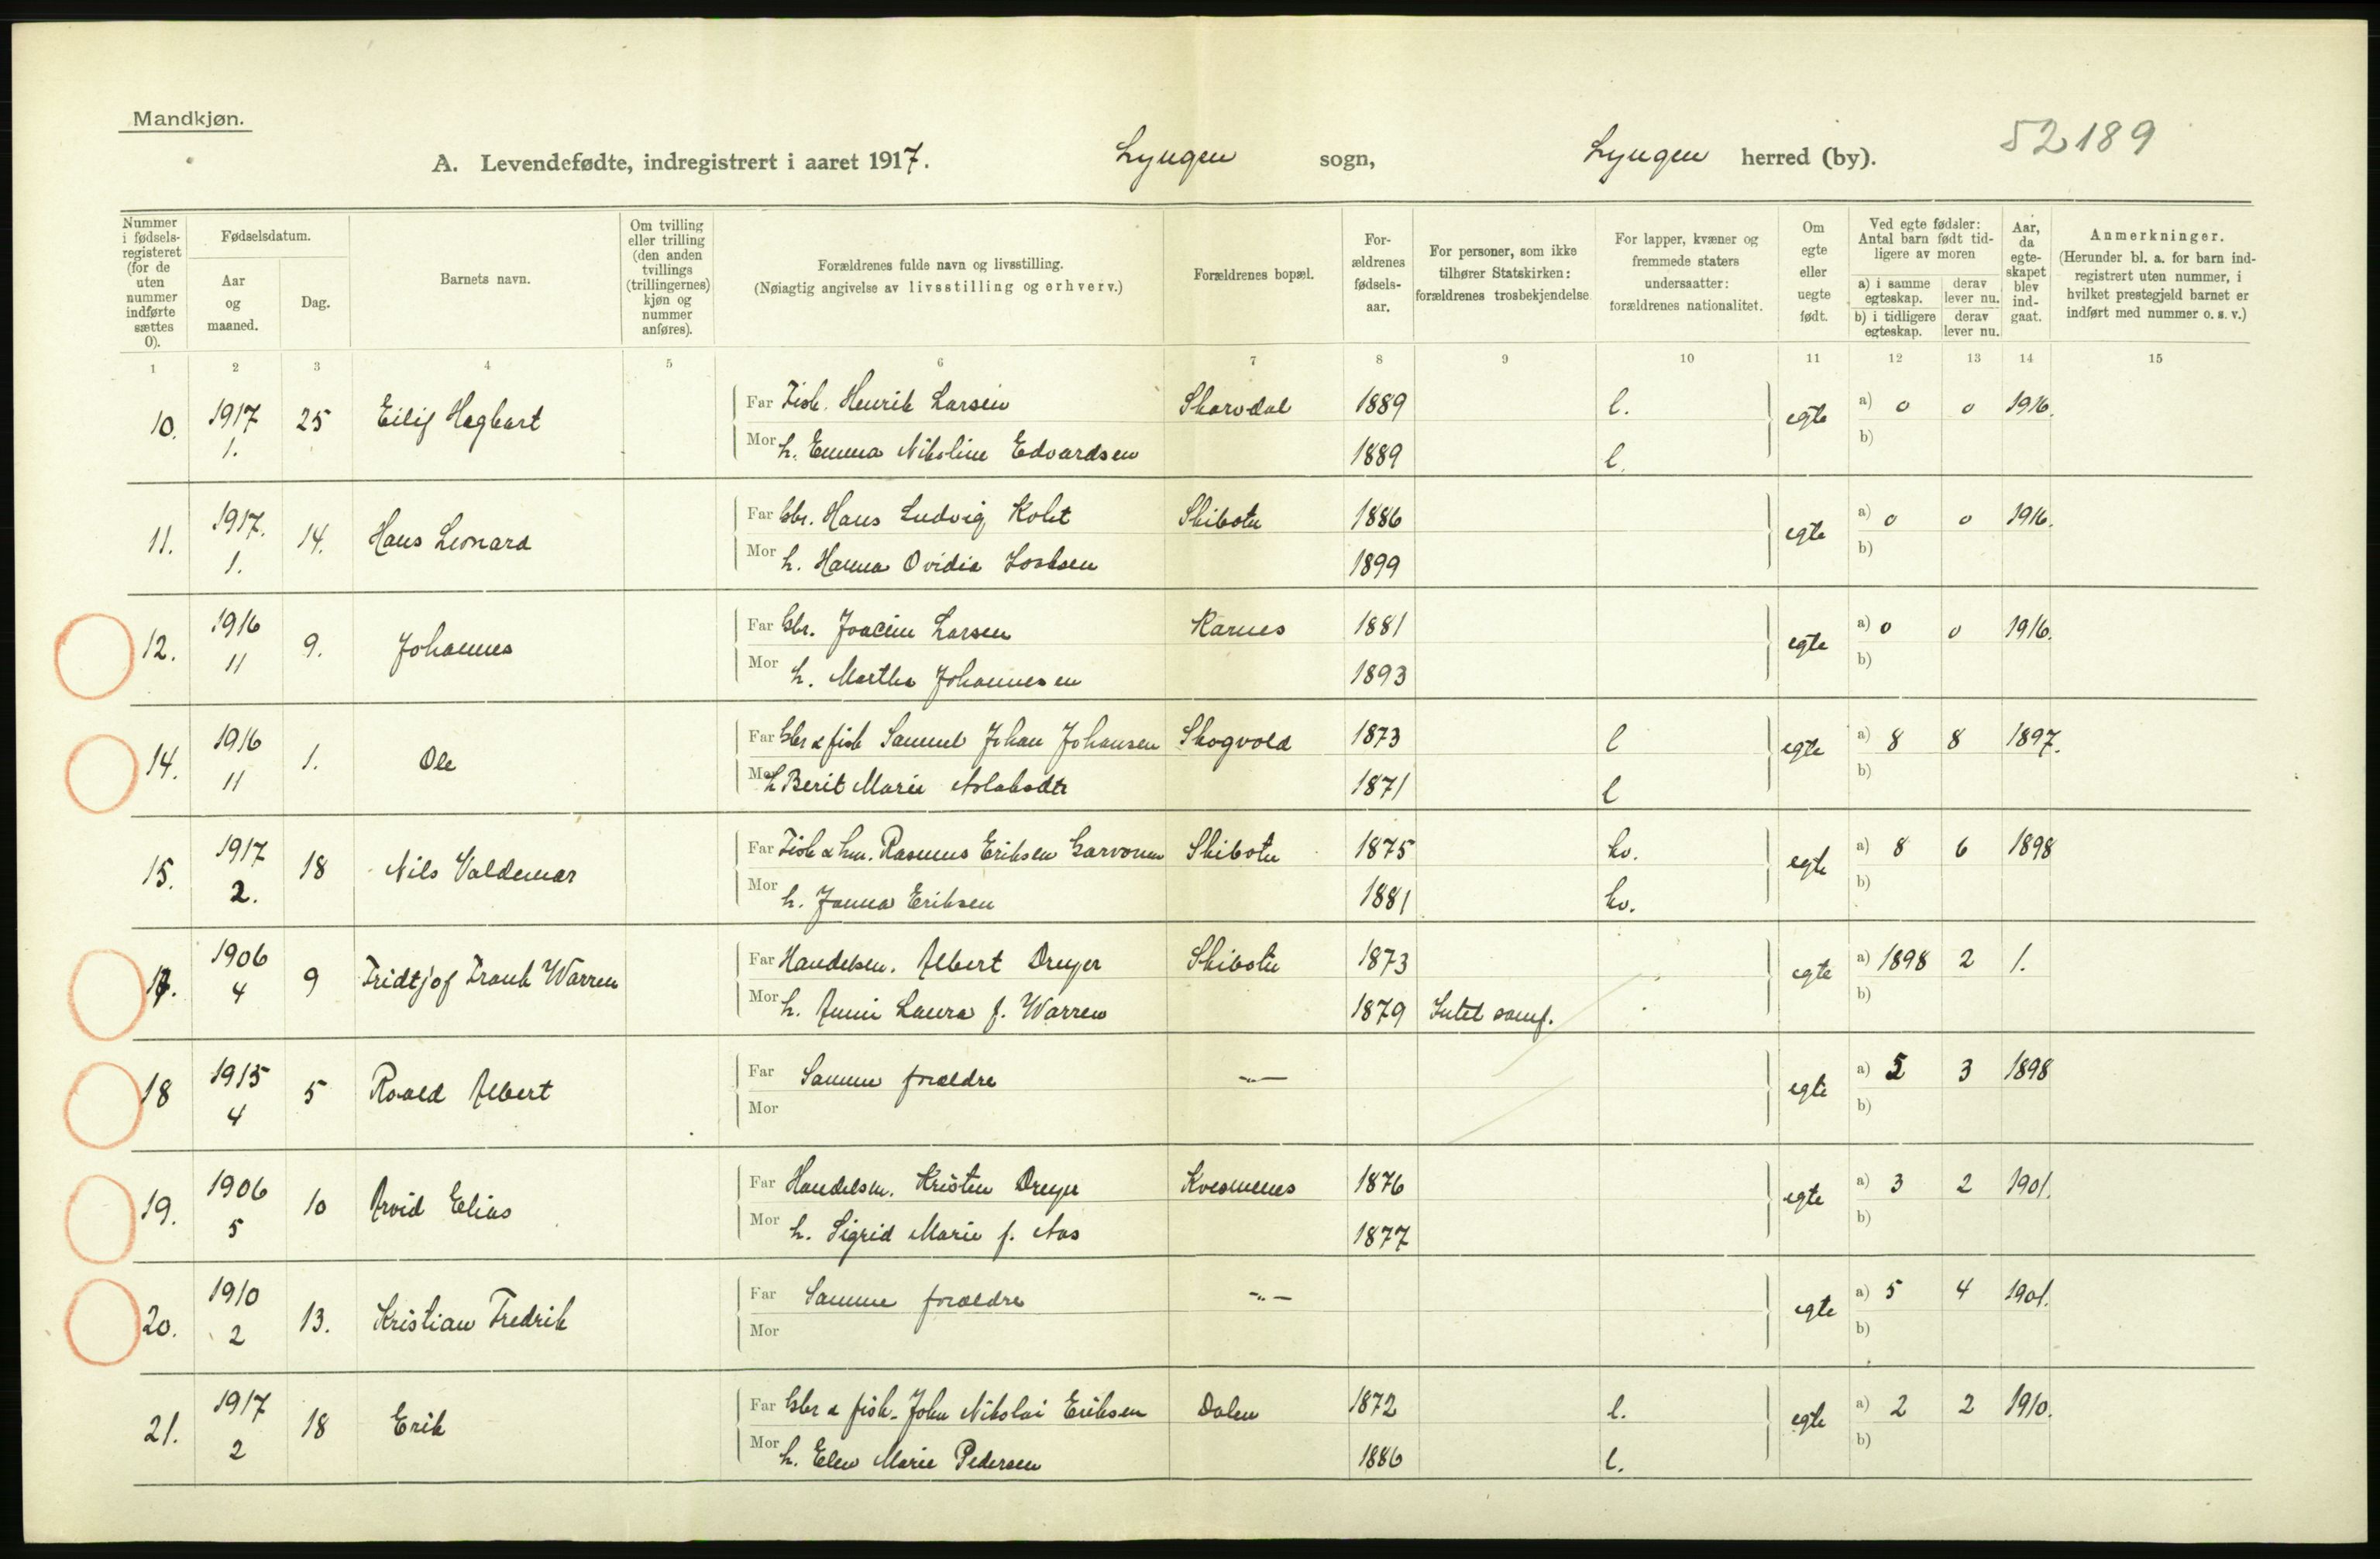 Mandkjøn.
A. Levendefødte, indregistrert i aaret 1917. Lyngen sogn, Lyngen herred (by). 52189
Nummer i fødsels-registeret (for de uten nummer indførte sættes 0).
Fødselsdatum.
Aar og maaned.
Dag.
Barnets navn.
Om tvilling eller trilling (den anden tvillings (trillingernes) kjøn og nummer anføres).
Forældrenes fulde navn og livsstilling.
(Nøiagtig angivelse av livsstilling og erhverv.)
Forældrenes bopæl.
For-ældrenes fødsels-aar.
For personer, som ikke tilhører Statskirken: forældrenes trosbekjendelse
For lapper, kvæner og fremmede staters undersaatter: forældrenes nationalitet.
Om egte eller uegte født.
Ved egte fødsler: Antal barn født tid-ligere av moren
a) i samme egteskap. derav lever nu.
b) i tidligere egteskap. derav lever nu.
Aar, da egte-skapet blev ind-gaat.
Anmerkninger.
(Herunder bl. a. for barn ind-registrert uten nummer, i hvilket prestegjeld barnet er indført med nummer o. s. v.)
1 2 3 4 5 6 7 8 9 10 11 12 13 14 15
10. 1917 25 Eilif Hagbart Far Fisk. Henrik Larsen Skardal 1889 l. egte a) 0 0 1916.
1. Mor h. Emma Nikoline Edvardsen 1889 l. b)
11. 1917. 14. Hans Leonard Far Gbr. Hans Ludvig Koht Skibotn 1886 egte a) 0 0 1916.
1. Mor h. Hanna Ovidia 1899 b)
12. 1916 9. Johannes Far Gbr. Joacim Larsen Karnes 1881 egte a) 0 0 1916.
11 Mor h. Martha Johannesen 1893 b)
14. 1916 1. Ole Far Gbr & fisk Samuel Johan Johansen Skogvold 1873 l egte a) 8 8 1897.
11 Mor h Berit Marie Aslaksdtr 1871 l b)
15. 1917 18 Nils Valdemar Far Fisk & hm. Rasmus Eriksen Skibotn 1875 kv. egte a) 8 6 1898
2. Mor h. Janna Eriksen 1881 kv. b)
17. 1906 9 Fridtjof Frank Warren Far Handelsm. Albert Dreyer Skibotn 1873 egte a) 1898 2 1.
4 Mor h. Annie Laura f. Warren 1879 Intet samf. b)
18 1915 5 Roald Albert Far Samme forældre -„- egte a) 5 3 1898
4 Mor b)
19. 1906 10 Arvid Elias Far Handelsm. Kristen Dreyer Kvesmenes 1876 egte a) 3 2 1901.
5 Mor h. Sigrid Marie f. Aas 1877 b)
20. 1910 13. Kristian Fredrik Far Samme forældre -„- egte a) 5 4 1901.
2 Mor b)
21. 1917 18 Erik Far Gbr & fisk. John Nikolai Eriksen Dalen 1872 l. egte a) 2 2 1910.
2 Mor h. Elen Marie Pedersen 1886 l. b)